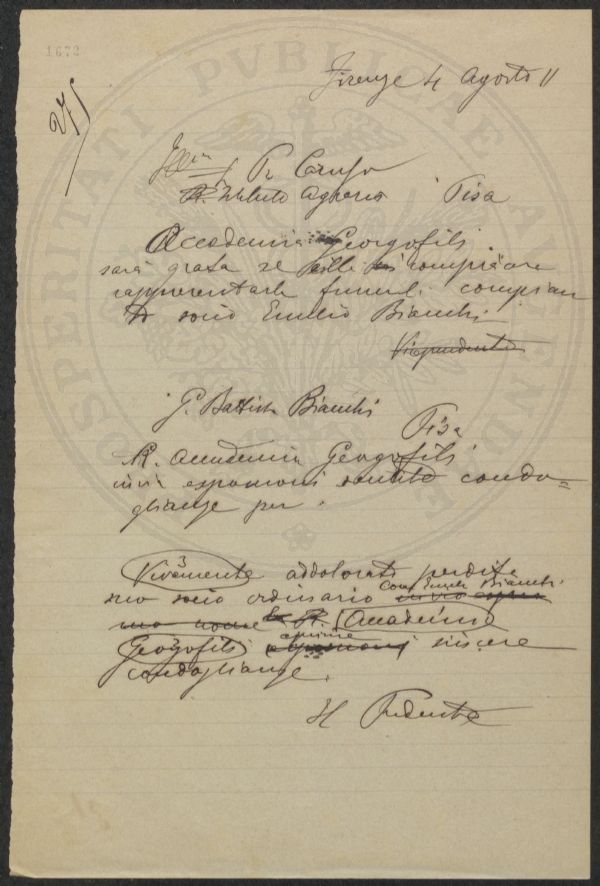 1672
275
Firenze 4 Agosto 11
Ill.mo Pr. Caruso
R. Istituto Agrario Pisa
Accademia Georgofili
sarà grata se Ella compiacere
rappresentarla funerali compian
to socio Emilio Bianchi.
Vicepresidente
G. Battista Bianchi
Pisa
R. Accademia Georgofili
invia espressioni sentite condo=
glianze per.
3
Vivamente addolorata perdita
suo socio ordinario Com Emilio Bianchi
R. Accademia
Georgofili esprime sincere
condoglianze.
Il Presidente
PROSPERITATI PVBLICAE AVGENDAE